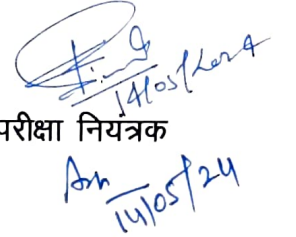 14/05/2024
परीक्षा नियंत्रक
14/05/24